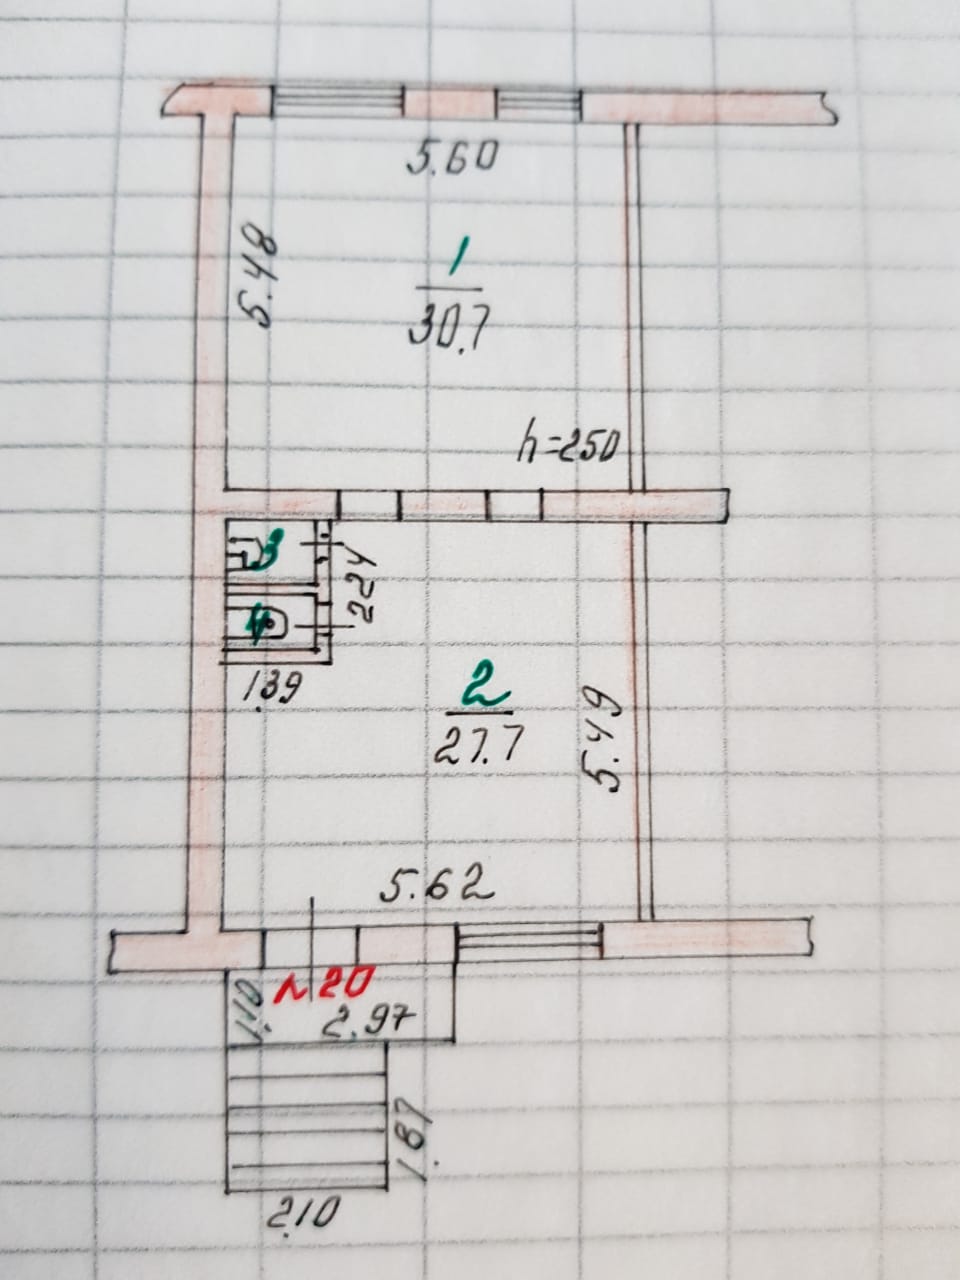 5.60
5.48
1
30.7
h=250
3
2.24
4
1.39
2
27.7
5.49
5.62
№20
1.10
2.97
1.87
2.10